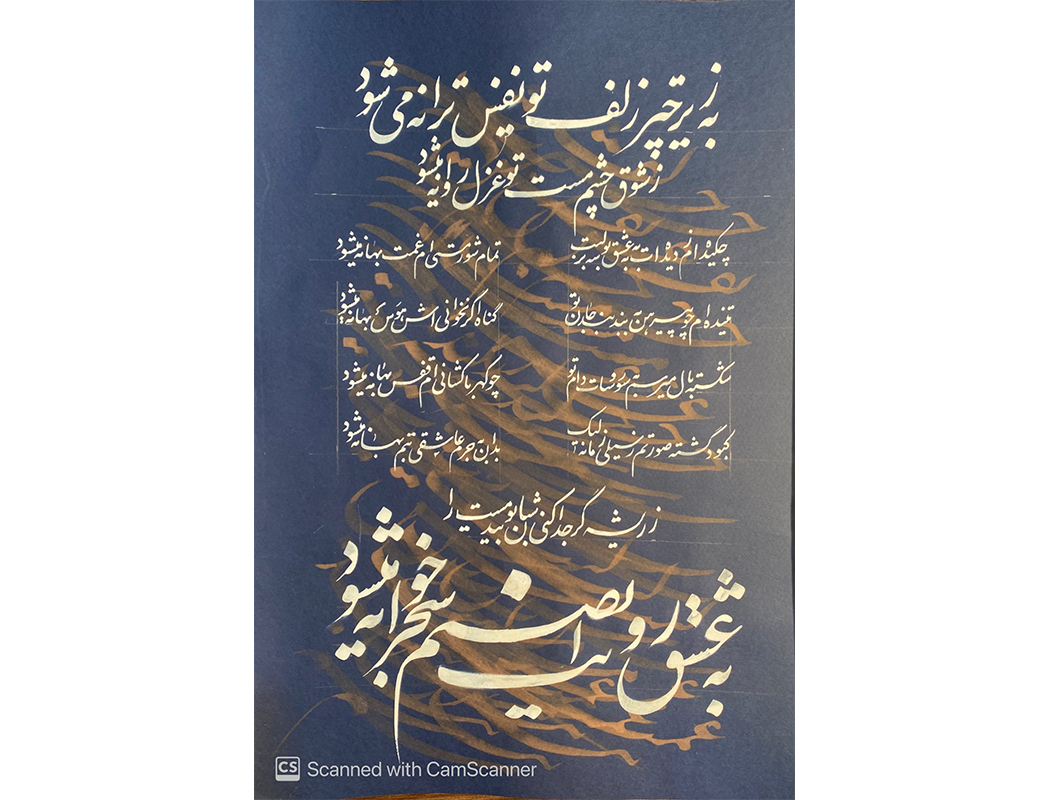 به زیر چتر زلف تو نفس ترانه می شود
ز شوق چشم مست تو غزل روانه میشود
چکیده ام ز دیده ات به عشق بوسه بر لبت تمام شور مستی ام غمت بهانه میشود
تنیده ام چو پیرهن به بند بند جان تو گناه اگر بخوانی اش هوس بهانه میشود
شکسته بال میرسم به دام تو چو کهربا کشانی ام قفس بهانه میشود
کبود گشته صورتم ز سیلی زمانه لیک بدان به جرم عاشقی تبم بهانه میشود
ز ریشه گر جدا کنی بید مست را
به عشق رویت ای صنم سحر جوانه میشود
CS Scanned with CamScanner